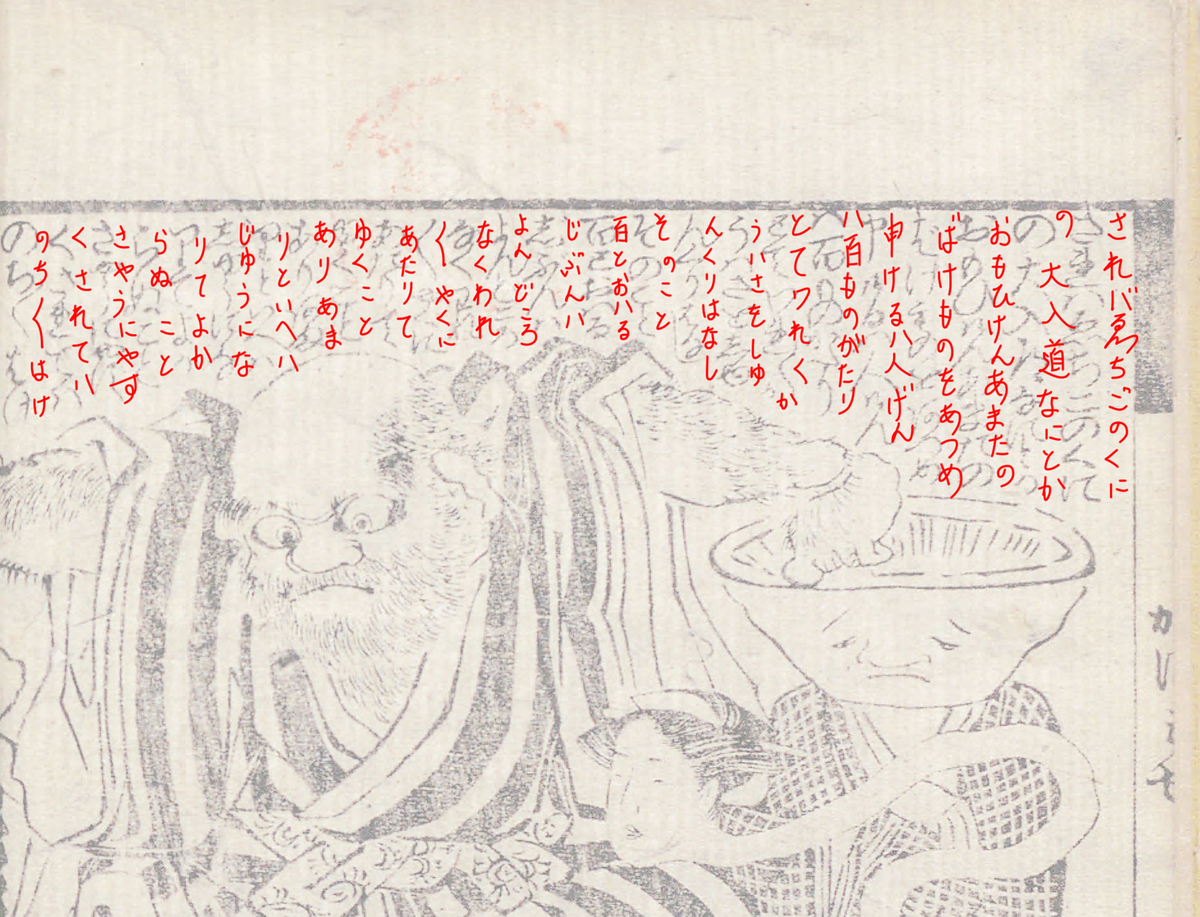 されバゑちごのくに
の 大入道なにとか
おもひけんあまたの
ばけものをあつめ
申ける八人げん
八百ものがたり
とてワれくか
ういさをしゆ
んくりはなし
そのこと
百とおハる
じぶんハ
よんどころ
なくわれ
〱やくに
あたりて
ゆくこと
ありあま
りといへハ
じゅうにな
りてよか
らぬ こと
さやうにやす
くされてハ
のち〱はけ